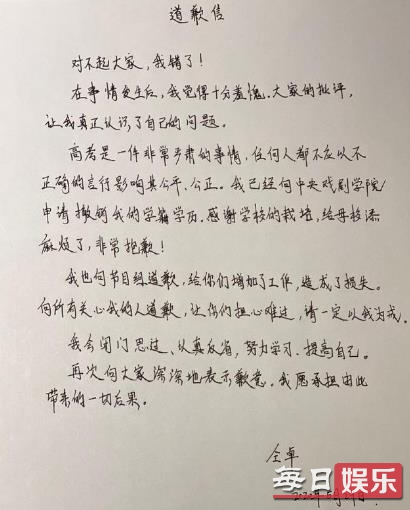 道歉信
对不起大家，我错了！
在事情发生后，我觉得十分羞愧。大家的批评，
让我真正认识了自己的问题。
高考是一件非常严肃的事情，任何人都不应以不
正确的言行影响其公平、公正。我已经向中央戏剧学院
申请撤销我的学籍学历。感谢学校的栽培，给母校添
麻烦了，非常抱歉！
我也向节目组道歉，给你们增加了工作，造成了损失。
向所有关心我的人道歉，让你们担心难过，请一定以我为戒。
我会闭门思过、认真反省，努力学习、提高自己。
再次向大家深深地表示歉意。我愿承担由此
带来的一切后果。
仝卓
2020年6月
每日娱乐